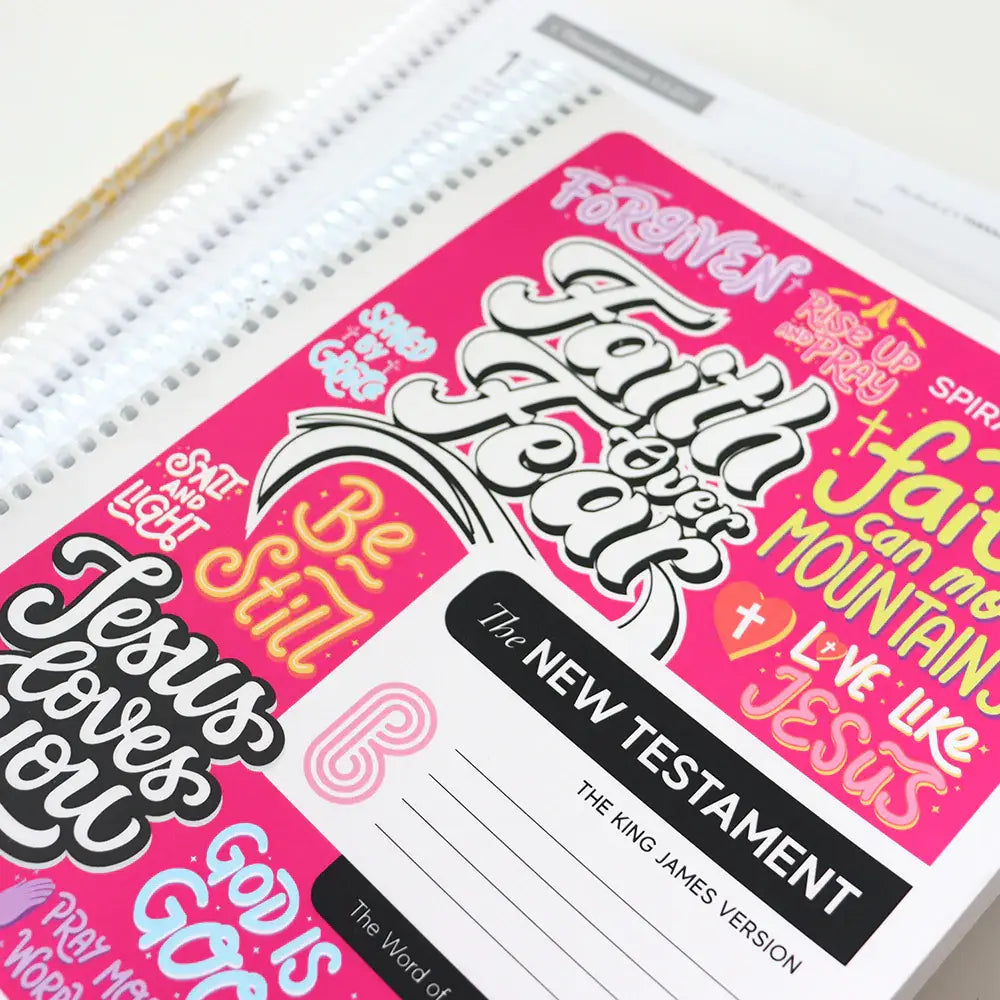 1
FORGIVEN
RISE UP
AND PRAY
SAVED
BY
GRACE
Faith
Over
Fear
SPIRA
faith
can mo
MOUNTAINS
SALT
AND
LIGHT
Be
Still
Jesus
loves
you
LOVE LIKE
JESUS
The NEW TESTAMENT
THE KING JAMES VERSION
B
GOD IS
GOO
PRAY MO
WOR
The Word of